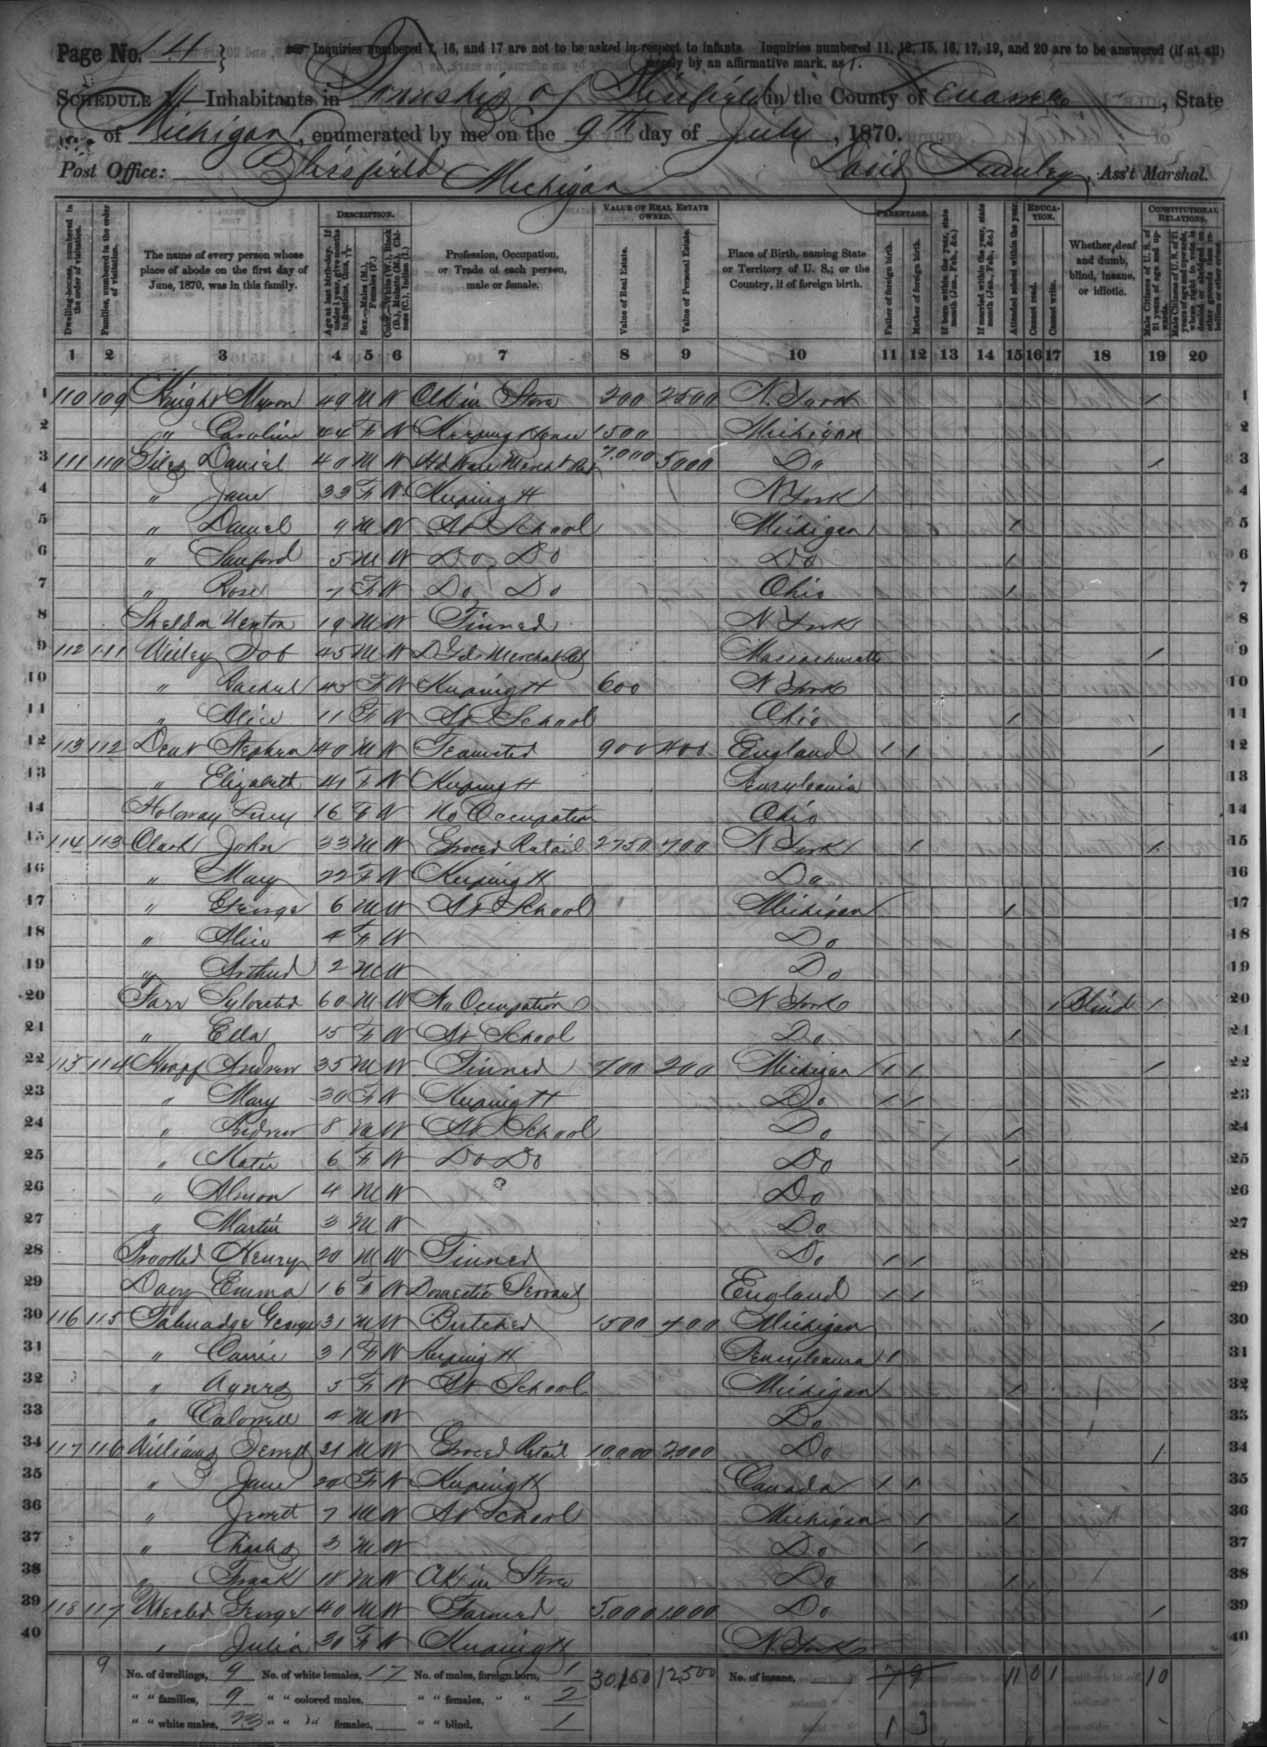 Page No. 14
Inquiries numbered 7, 16, and 17 are not to be asked in respect to infants. Inquiries numbered 11, 12, 15, 16, 17, 19, and 20 are to be answered (if at all)
merely by an affirmative mark, as /.
Schedule 1.—Inhabitants in Township of Blissfield in the County of Lenawee, State
of Michigan, enumerated by me on the 9th day of July, 1870.
Post Office: Blissfield Michigan David Ass't Marshal.
Dwelling-houses, numbered in the order of visitation.
Families, numbered in the order of visitation.
The name of every person whose place of abode on the first day of June, 1870, was in this family.
Description.
Age at last birth-day. If under 1 year, give months in fractions, thus, 3/12
Sex.—Males (M.), Females (F.)
Color.—White (W.), Black (B.), Mulatto (M.), Chinese (C.), Indian (I.)
Profession, Occupation, or Trade of each person, male or female.
Value of Real Estate owned.
Value of Real Estate.
Value of Personal Estate.
Place of Birth, naming State or Territory of U. S.; or the Country, if of foreign birth.
Parentage.
Father of foreign birth.
Mother of foreign birth.
If born within the year, state month (Jan., Feb., &c.)
If married within the year, state month (Jan., Feb., &c.)
Attended school within the year.
Education.
Cannot read.
Cannot write.
Whether deaf and dumb, blind, insane, or idiotic.
Constitutional Relations.
Male Citizens of U. S. of 21 years of age and upwards.
Male Citizens of U. S. of 21 years of age and upwards, whose right to vote is denied or abridged on other grounds than rebellion or other crime.
1 2 3 4 5 6 7 8 9 10 11 12 13 14 15 16 17 18 19 20
1 110 109 Knight Myron 49 M W Clk in Store 200 2500 N. York / 1
2 " Caroline 44 F W Keeping House 1500 Michigan 2
3 111 110 Giles Daniel 40 M W Hd Ware Mercht Ret 7,000 5000 Do / 3
4 " Jane 33 F W Keeping H N York 4
5 " Daniel 9 M W At School Michigan / 5
6 " Sanford 5 M W Do Do Do / 6
7 " Rose 7 F W Do Do Ohio / 7
8 Sheldon 19 M W Tinner N York 8
9 112 111 Wiley Job 45 M W D Gds Merchat Ret Massachusetts / 9
10 " Rachel 45 F W Keeping H 600 N York 10
11 " Alice 11 F W At School Ohio / 11
12 113 112 Dent Stephen 40 M W Teamster 900 400 England / / / 12
13 " Elizabeth 41 F W Keeping H Pensylvania 13
14 Holoway Lucy 16 F W No Occupation Ohio 14
15 114 113 Clark John 33 M W Grocer Retail 2750 700 N York / / 15
16 " Mary 22 F W Keeping H Do 16
17 " George 6 M W At School Michigan / 17
18 " Alice 4 F W Do 18
19 " Arthur 2 M W Do 19
20 Farr Sylvester 60 M W No Occupation N York / Blind / 20
21 " Ella 15 F W At School Do / 21
22 115 114 Knapp Andrew 35 M W Tinner 700 200 Michigan / / / 22
23 " Mary 30 F W Keeping H Do / / 23
24 " Andrew 8 M W At School Do / 24
25 " Katie 6 F W Do Do Do / 25
26 " Almon 4 M W Do 26
27 " Martin 3 M W Do 27
28 Henry 20 M W Tinner Do / / 28
29 Davy Emma 16 F W Domestic Servant England / / 29
30 116 115 Talmadge George 31 M W Butcher 1500 400 Michigan / 30
31 " Carrie 31 F W Keeping H Pensylvania / / 31
32 " Agnes 5 F W At School Michigan / 32
33 " 4 M W Do 33
34 117 116 Williams Jerrett 31 M W Grocer Retail 10,000 2000 Do / 34
35 " Jane 29 F W Keeping H Canada / / 35
36 " Jerrett 7 M W At School Michigan / / 36
37 " Charles 3 M W Do / 37
38 " Frank 18 M W Clk in Store Do / 38
39 118 117 George 40 M W Farmer 5,000 1,000 Do / 39
40 " Julia 30 F W Keeping H N. York 40
9 No. of dwellings, 9 No. of white females, 17 No. of males, foreign born, 1 30,150 12500 No. of insane, 7 9 11 0 1 10
" " families, 9 " " colored males, " " females, " " 2
" " white males, 23 " " " females, " " blind, 1 1 3